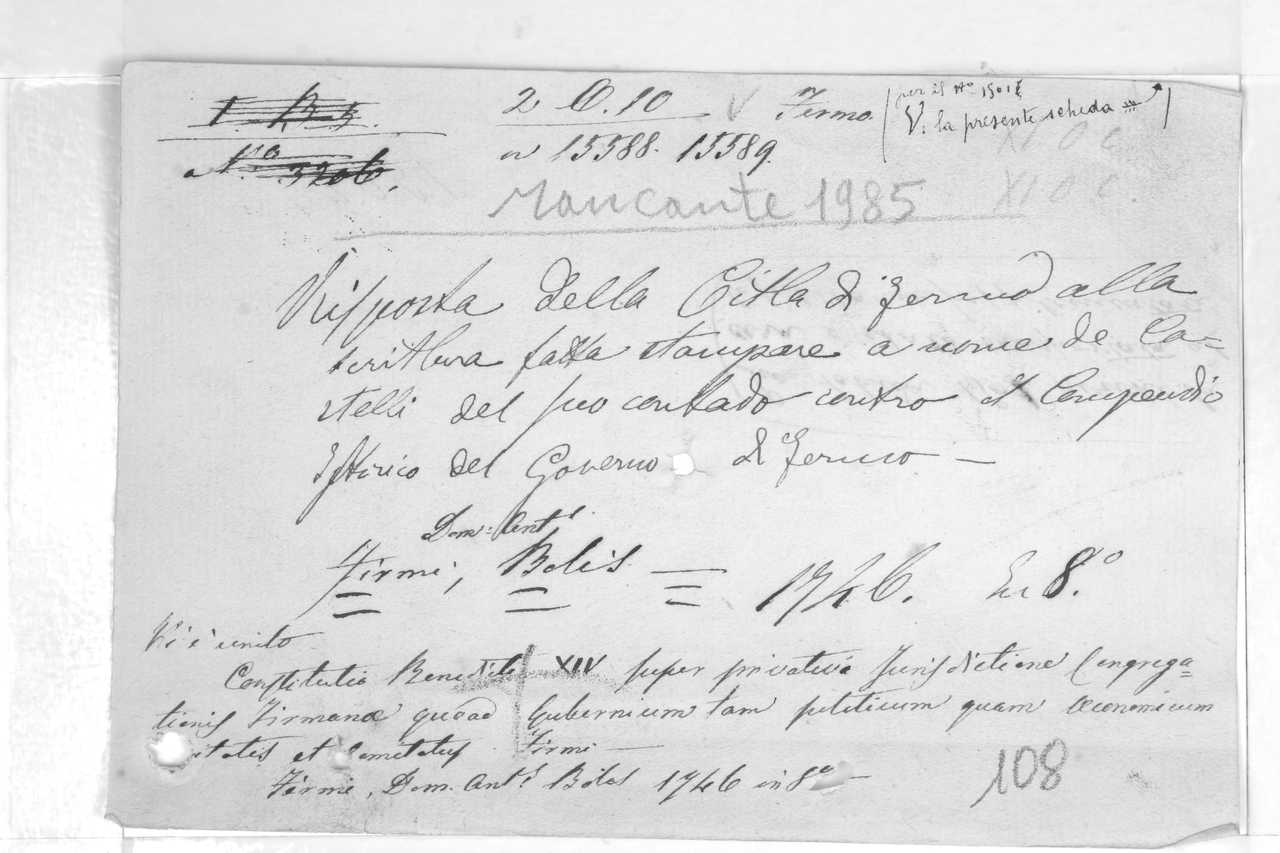 1 B 5.
2 O. 10 V Fermo.
per il No 15018
V. la presente scheda
No 3206.
n 15588. 15589.
XI O C
Mancante 1985
XI O C.
Risposta della Città di Fermo alla
scrittura fatta stampare a nome de Ca-
stelli del suo contado contro il Compendio
Istorico del Governo di Fermo —
Firmi, Dom: Ant.s Bolis = 1746. In 8.o
Vi è unito
Constitutio Benedicti XIV super privativa Jurisdictione Congrega=
tionis Firmanæ quoad Gubernium tam politicum quam Oeconomicum
itatis et Comitatus Firmi —
Firmi, Dom. Ant.s Bolis 1746 in 8.o —
108